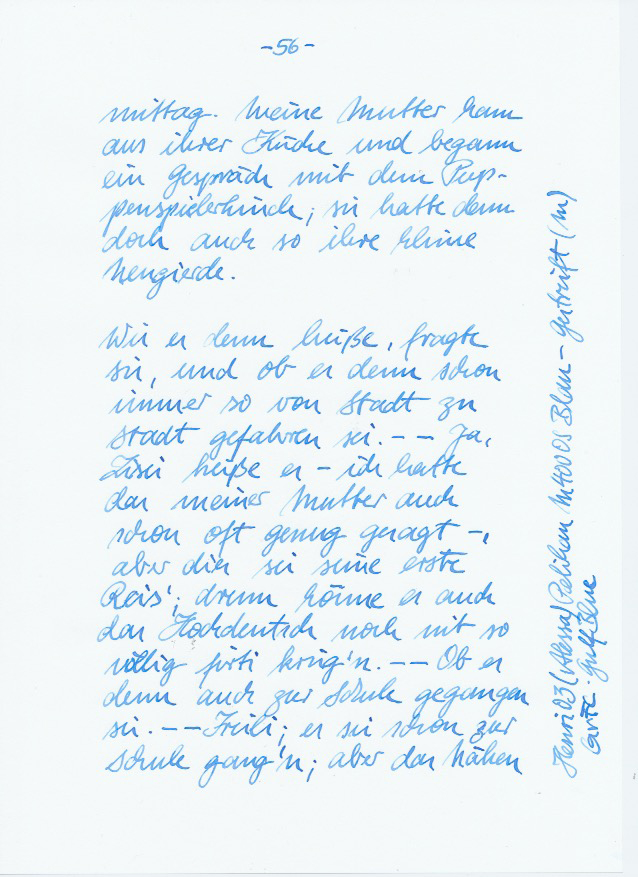 -56-
mittag. Meine Mutter kam
aus ihrer Küche und begann
ein Gespräch mit dem Pup-
penspielerkinde; sie hatte denn
doch auch so ihre kleine
Neugierde.
Wie er denn heiße, fragte
sie, und ob er denn schon
immer so von Stadt zu
Stadt gefahren sei. -- Ja,
Lisei heiße er - ich hatte
das meiner Mutter auch
schon oft genug gesagt -,
aber dies sei seine erste
Reis'; drum könne er auch
das Hochdeutsch noch nit so
völlig firti krieg'n. -- Ob er
denn auch zur Schule gegangen
sei. -- Freili; er sei schon zur
Schule gang'n; aber das Nähen
Henri03 (Alessa) Pelikan M400 OS Blau - gestreift (M)
Gulf Blue